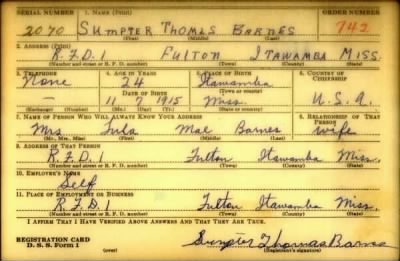 SERIAL NUMBER 1. NAME (Print) ORDER NUMBER
2070 SUMPTER THOMLS BARNES 742
(First) (Middle) (Last)
2. ADDRESS (Print)
R.F.D. 1 FULTON ITAWAMBA MISS.
(Number and street or R. F. D. number) (Town) (County) (State)
3. TELEPHONE 4. AGE IN YEARS 5. PLACE OF BIRTH 6. COUNTRY OF CITIZENSHIP
None 24 Itawamba
DATE OF BIRTH (Town or county)
11 7 1915 Miss. U.S.A.
(Exchange) (Number) (Mo.) (Day) (Yr.) (State or country)
7. NAME OF PERSON WHO WILL ALWAYS KNOW YOUR ADDRESS 8. RELATIONSHIP OF THAT PERSON
Mrs Lula Mae Barnes wife
(Mr., Mrs., Miss) (First) (Middle) (Last)
9. ADDRESS OF THAT PERSON
R.F.D. 1 Fulton Itawamba Miss.
(Number and street or R. F. D. number) (Town) (County) (State)
10. EMPLOYER'S NAME
Self
11. PLACE OF EMPLOYMENT OR BUSINESS
R.F.D. 1 Fulton Itawamba Miss.
(Number and street or R. F. D. number) (Town) (County) (State)
I AFFIRM THAT I HAVE VERIFIED ABOVE ANSWERS AND THAT THEY ARE TRUE.
REGISTRATION CARD Sumpter Thomas Barnes
D. S. S. Form 1 (over) (Registrant's signature)